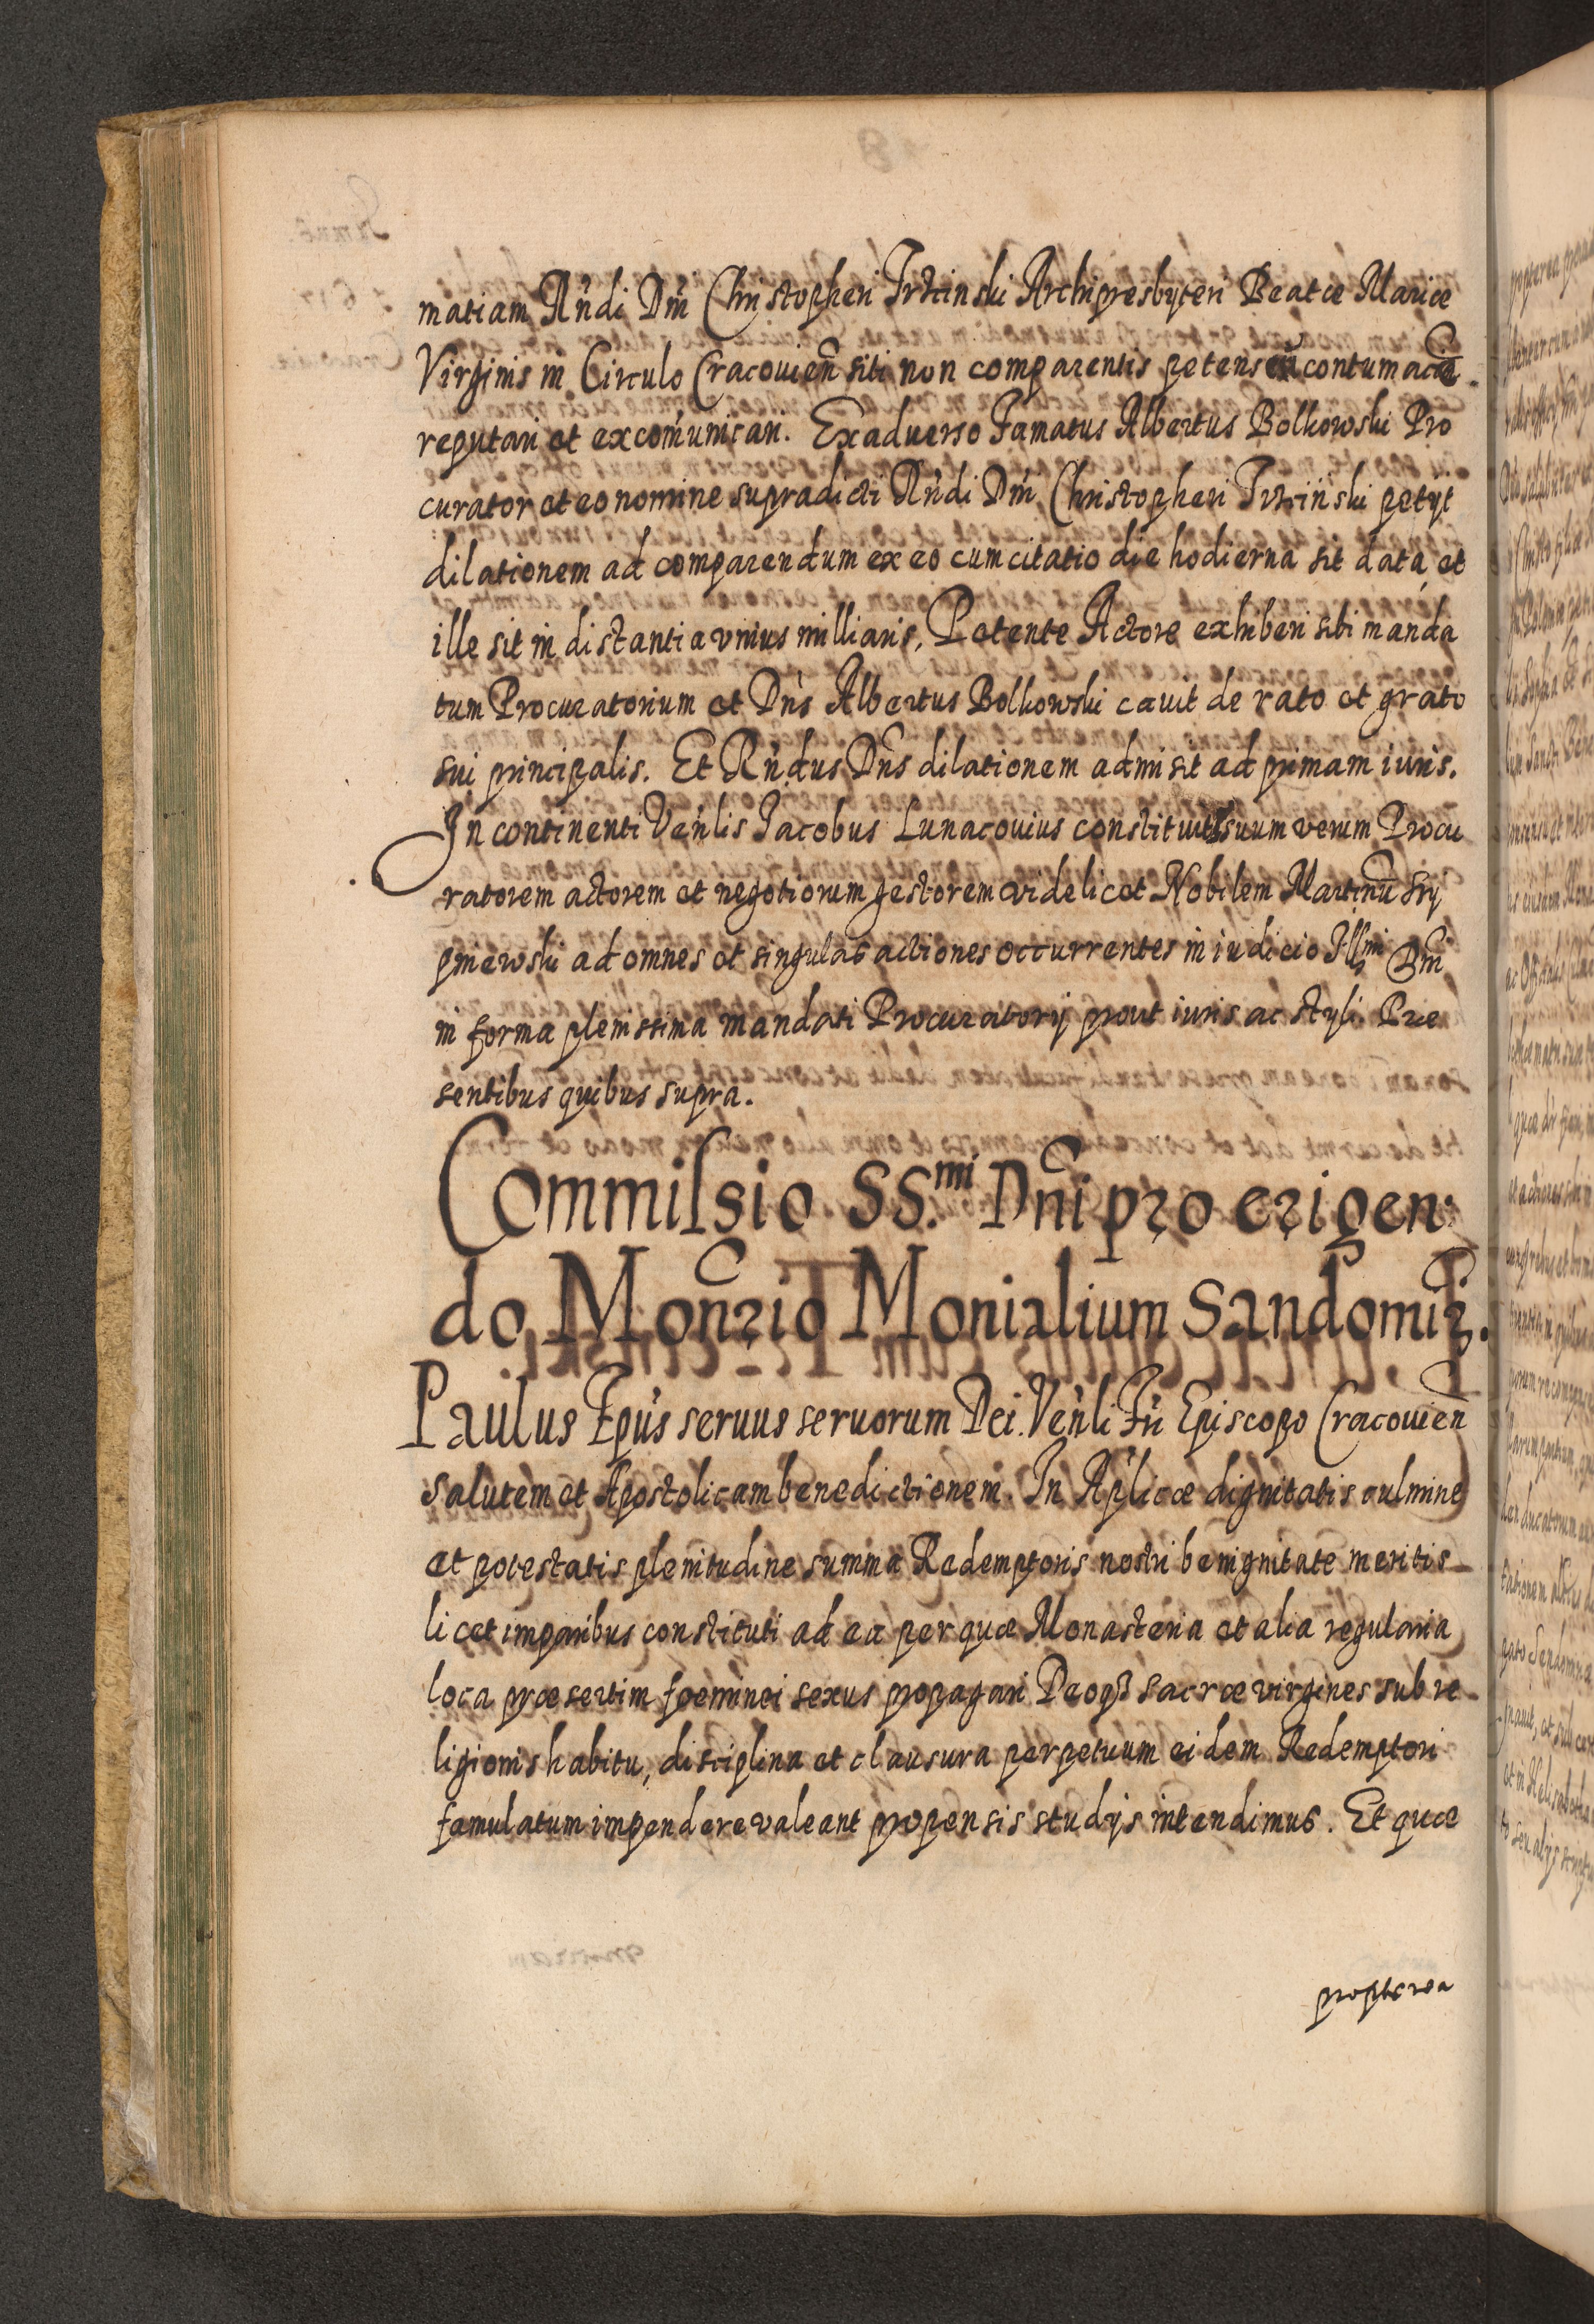 matiam Rńdi Dńi Christopheri Trzcinski Archipresbyteri Beatæ Mariæ
Virginis in Circulo Cracouień siti non comparentis petens contumacē
reputari et excom̄unicari. Exaduerso Famatus Albertus Bolkowski Pro
curator et eo nomine supradicti Rńdi Dńi Christopheri Trzcinski petijt
dilationem ad comparendum ex eo cum citatio die hodierna sit data, et
ille sit in distantia vnius milliaris. Petente Actore exhiberi sibi manda
tum Procuratorium et Dńs Albertus Bolkowski cauit de rato et grato
sui principalis. Et Rńdus Dńs dilationem admisit ad primam iuris.
In continenti Veńlis Jacobus Lunacouius constituit suum verum Procu
ratorem actorem et negotiorum gestorem videlicet Nobilem Martinū
ad omnes et singulas actiones occurrentes in iudicio Illmi Dńi
in forma plenissima mandati Procuratorij prout iuris ac styli. Præ
sentibus quibus supra.
Commissio SS.mi Dńi pro erigen:
do Mońrio Monialium Sandomir.
Paulus Epús seruus seruorum Dei. Veńli Fŕi Episcopo Cracouień
Salutem et Apostolicam benedictionem. In Aplicæ dignitatis culmine
et potestatis plenitudine summa Redemptoris nostri benignitate meritis
licet imparibus constituti ad ea per quæ Monasteria et alia regularia
loca præsertim foeminei sexus propagari Deoqꝫ sacræ virgines sub re
ligionis habitu, disciplina et clausura perpetuum eidem Redemptori
famulatum impendere valeant propensis studijs intendimus. Et quæ
propterea